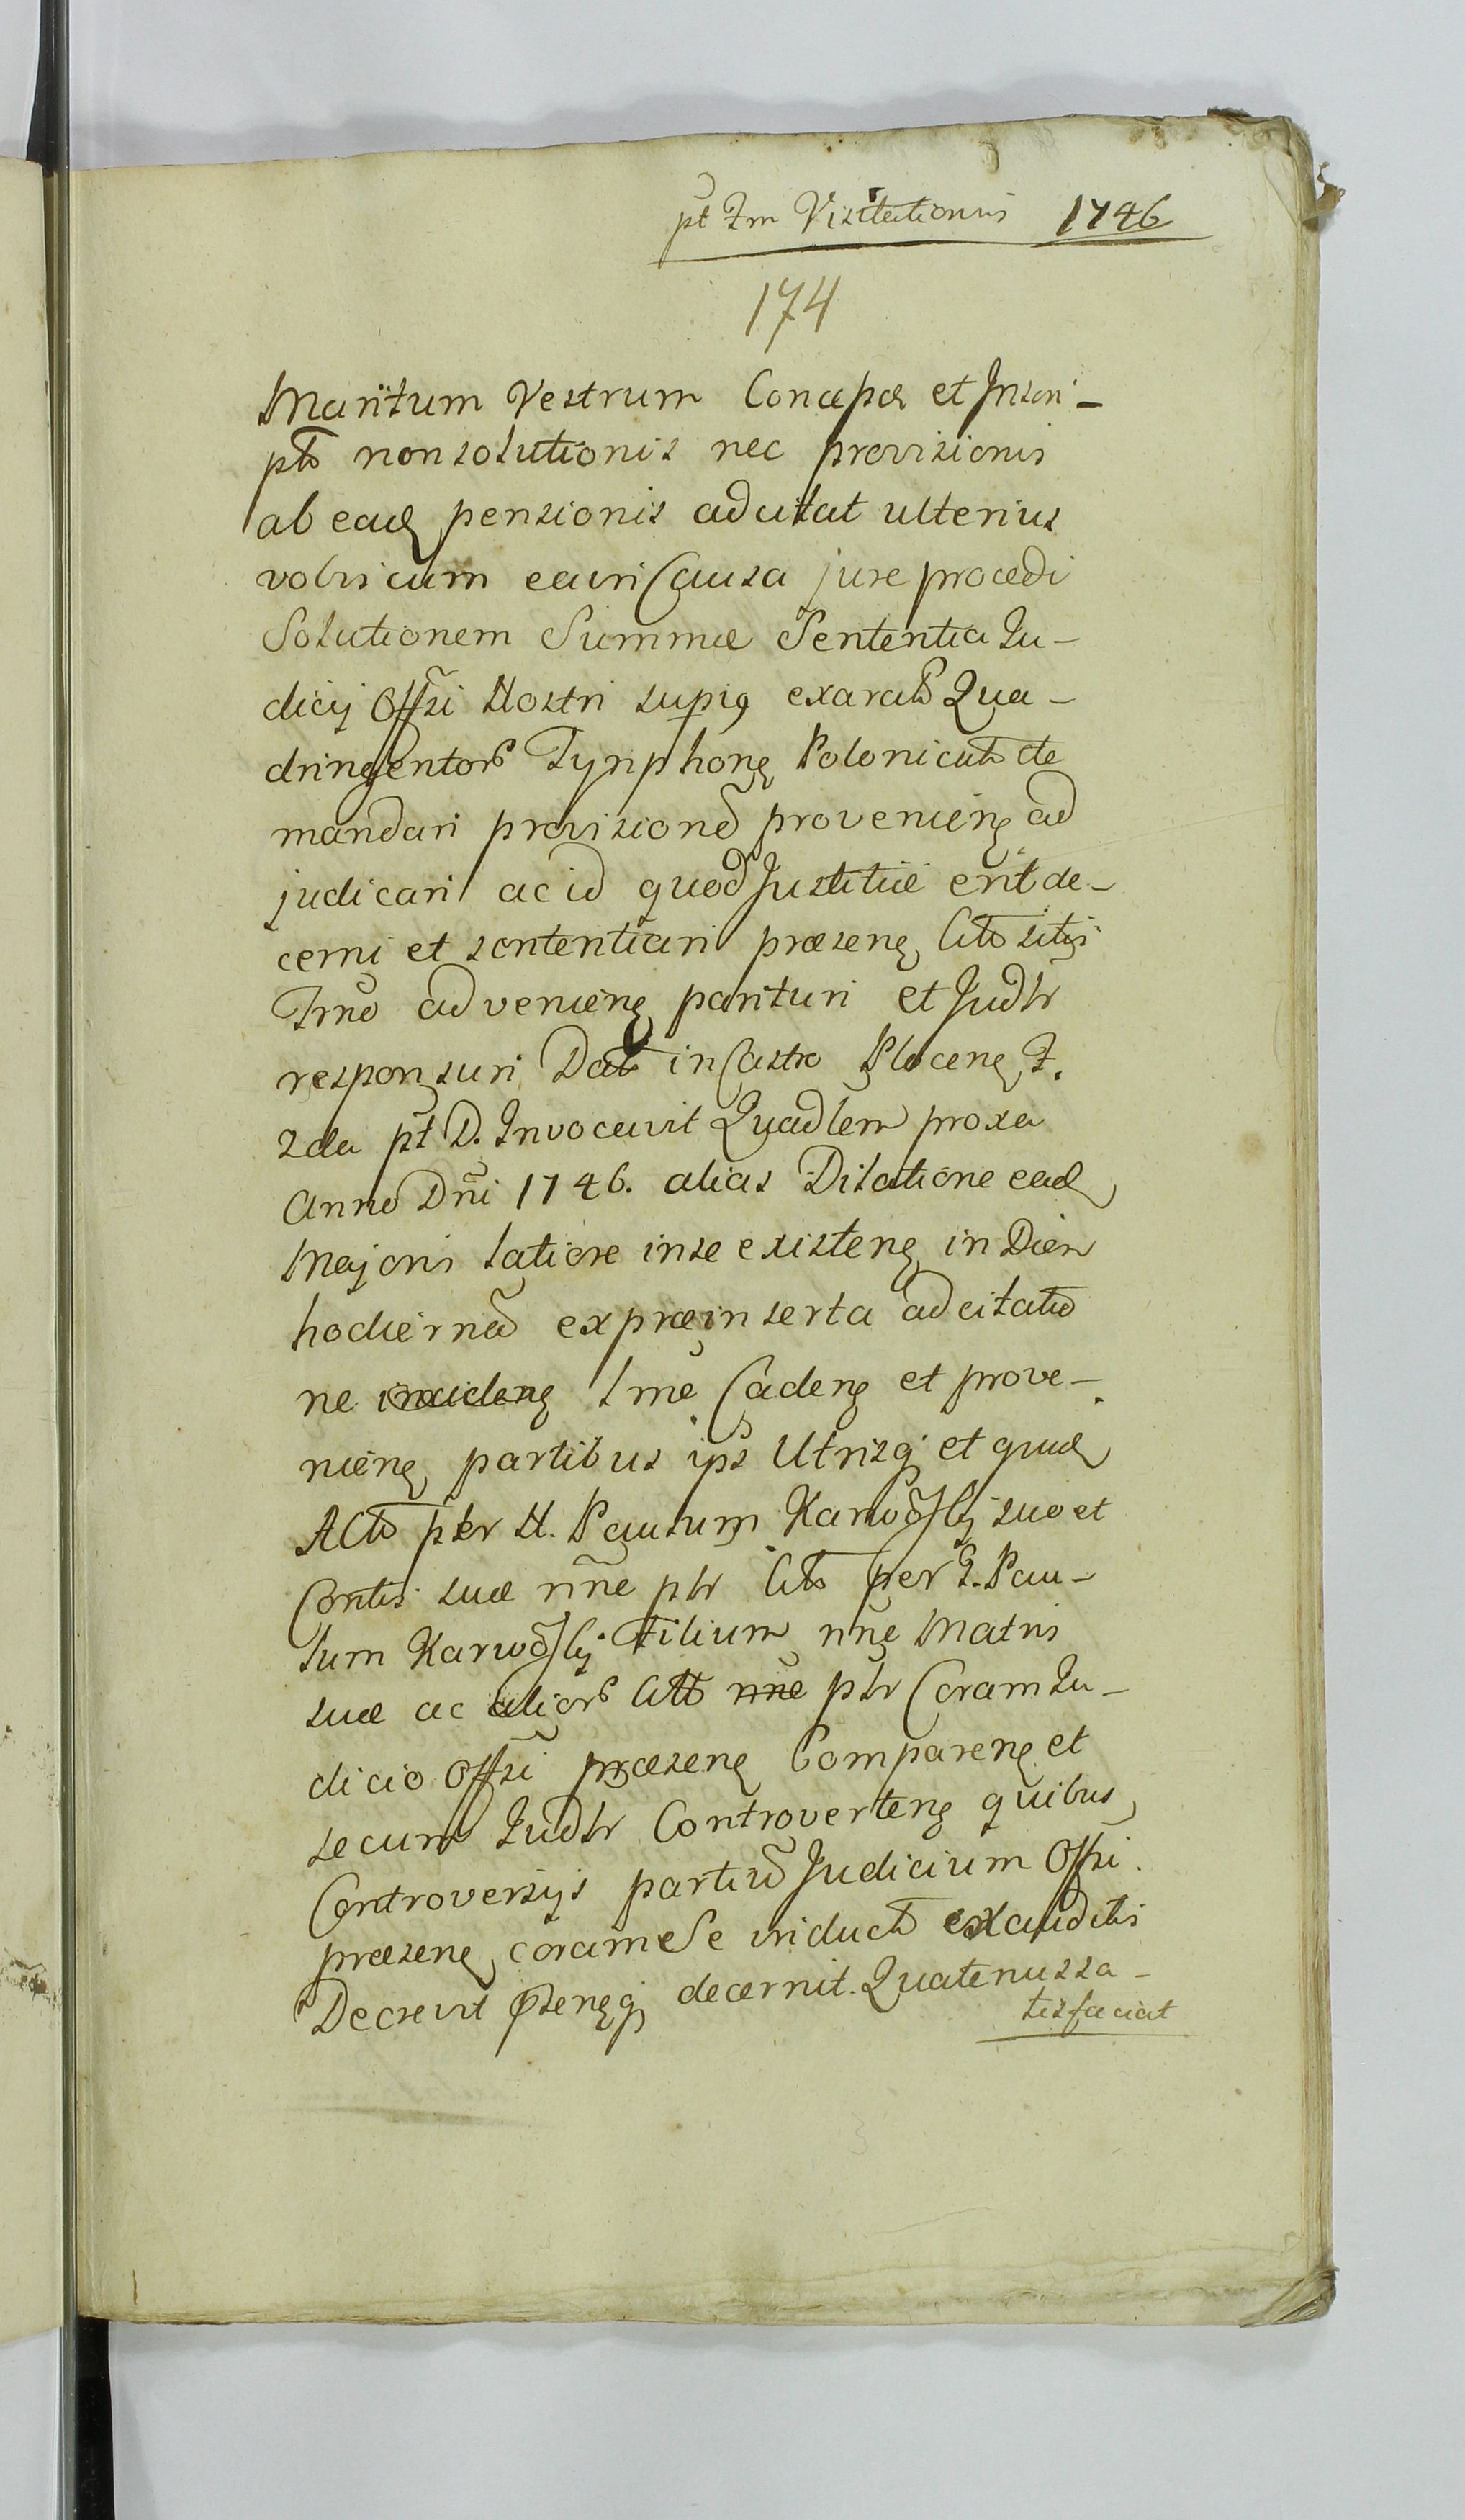 pt Fm Visitationis 1746
174
Maritum Vestrum Concepta et Inscri-
pta non solutionis nec provisionis
ab ead pensionis adcitat ulterius
vobiscum ea in Causa jure procedi
Solutionem Summæ Sententia Ju-
dicij Offsi Nostri supig exarata Qua-
dringentor Tynphong Polonicat de
mandari provisione provenieng ad
judicari ac id quod Justitiæ erit de-
cerni et sententiari præseng Cito sitis
Trno advenieng parituri et Judlr
responsuri Dat in Castro Ploceng F.
2da pt D. Invocavit Quadlem proxa
Anno Dni 1746. alias Dilatione ead
Majoris latiore in se existeng in Diem
hodierna ex præinserta adcitatio
ne Tme Cadeng et prove-
nieng partibus ips Utrisq et quid
Acto per N. Paulum Karwosky suo et
Contis suæ nne plr Cito per G. Pau-
lum Karwosky Filium nne Matris
suæ ac alior Citt nne plr Coram Ju-
dicio Offsi præseng Compareng et
secum Judlr Controverteng quibus
Controversijs partiu Judicium Offsi
præseng coram Se induct exauditis
Decrevit pseng q decernit. Quatenus sa-
tisfaciat